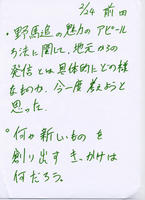 2/24 前田
・野馬追の魅力のアピール
方法に関して、地元からの
発信とは具体的にどの様
なものか、今一度考えようと
思った。
・何か新しいものを
創り出すきっかけは
何だろう。